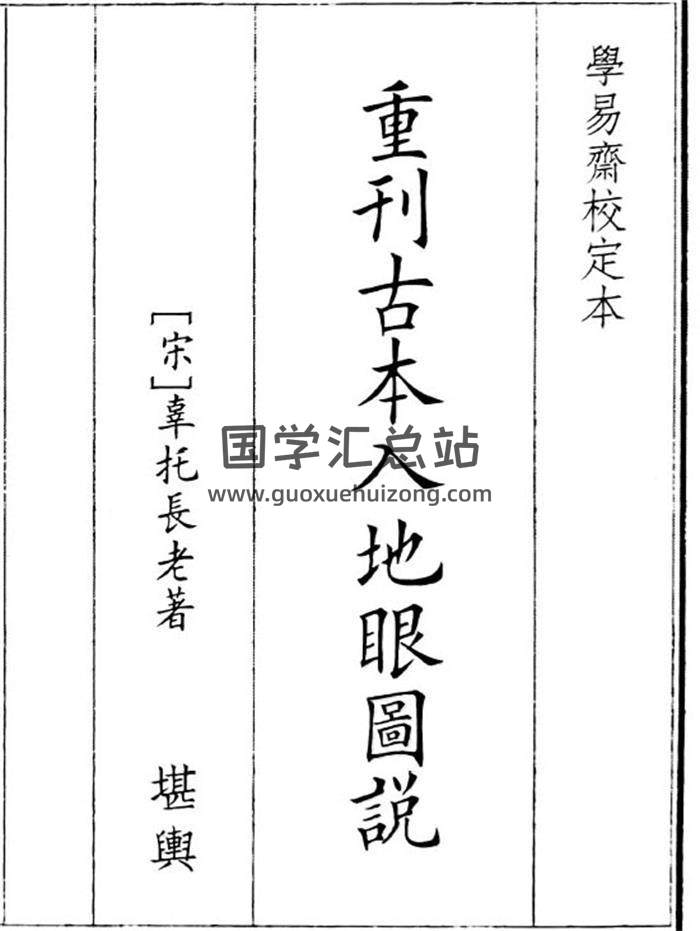 學易齋校定本
重刊古本入地眼圖説
[宋]辜托長老著
堪輿
国学汇总站
www.guoxuehuizong.com